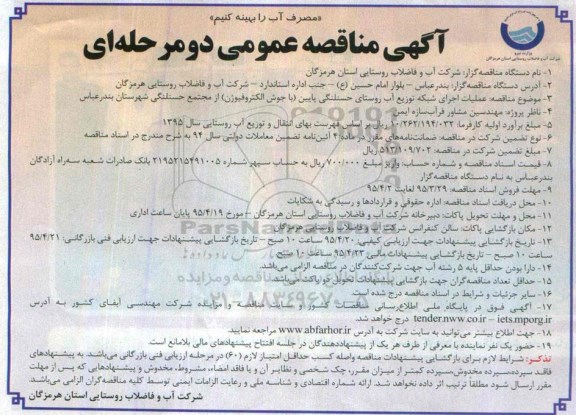 «مصرف آب را بهینه کنیم»
آگهی مناقصه عمومی دو مرحله‌ای
شرکت آب و فاضلاب روستایی استان هرمزگان
۱- نام دستگاه مناقصه‌گزار: شرکت آب و فاضلاب روستایی استان هرمزگان
۲- آدرس دستگاه مناقصه‌گزار: بندرعباس – بلوار امام حسین (ع) – جنب اداره استاندارد – شرکت آب و فاضلاب روستایی هرمزگان
۳- موضوع مناقصه: عملیات اجرای شبکه توزیع آب روستای حسنلنگی پایین (با جوش الکتروفیوژن) از مجتمع حسنلنگی شهرستان بندرعباس
۴- ناظر پروژه: مهندسین مشاور فرآب‌سازه ایمن
۵- مبلغ برآورد اولیه کارفرما: ۱۰/۲۶۲/۱۹۴/۰۳۲ ریال بر اساس فهرست بهای انتقال و توزیع آب روستایی سال ۱۳۹۵
۶- نوع تضمین شرکت در مناقصه: ضمانت‌نامه‌های مقرر در ماده ۴ آئین‌نامه تضمین معاملات دولتی سال ۹۴ به شرح مندرج در اسناد مناقصه
۷- مبلغ تضمین شرکت در مناقصه: ۵۱۳/۱۰۹/۷۰۲ ریال
۸- قیمت اسناد مناقصه و شماره حساب: واریز مبلغ ۷۰۰/۰۰۰ ریال به حساب سپهر شماره ۲۱۹۵۲۱۵۴۹۱۰۰۵ بانک صادرات شعبه سه‌راه آزادگان
بندرعباس به نام دستگاه مناقصه‌گزار
۹- مهلت فروش اسناد مناقصه: ۹۵/۳/۲۹ لغایت ۹۵/۴/۲
۱۰- محل دریافت اسناد مناقصه: اداره حقوقی و قراردادها و رسیدگی به شکایات
۱۱- محل و مهلت تحویل پاکات: دبیرخانه شرکت آب و فاضلاب روستایی استان هرمزگان – مورخ ۹۵/۴/۱۹ پایان ساعت اداری
۱۲- مکان بازگشایی پاکات: سالن کنفرانس شرکت آب و فاضلاب روستایی هرمزگان
۱۳- تاریخ بازگشایی پیشنهادات جهت ارزیابی کیفی: ۹۵/۴/۲۰ ساعت ۱۰ صبح – تاریخ بازگشایی پیشنهادات جهت ارزیابی فنی بازرگانی: ۹۵/۴/۲۱
ساعت ۱۰ صبح – تاریخ بازگشایی پیشنهادات مالی: ۹۵/۴/۲۳ ساعت ۱۰ صبح
۱۴- دارا بودن حداقل پایه ۵ رشته آب جهت شرکت‌کنندگان در مناقصه الزامی می‌باشد.
۱۵- حداقل تعداد مناقصه‌گران جهت بازگشایی پیشنهادات تحویل پاکت می‌باشد.
۱۶- سایر جزئیات و شرایط در اسناد مناقصه درج شده است.
۱۷- آگهی فوق در پایگاه ملی اطلاع‌رسانی مناقصات کشور و سایت مناقصه و مزایده شرکت مهندسی آبفای کشور به آدرس
tender.nww.co.ir – iets.mporg.ir درج خواهد شد.
۱۸- جهت اطلاع بیشتر می‌توانید به سایت شرکت به آدرس www.abfarhor.ir مراجعه نمایید.
۱۹- حضور یک نفر نماینده با معرفی از طرف هر یک از پیشنهاددهندگان در جلسه افتتاح پیشنهادهای مالی بلامانع است.
تذکر: شرایط لازم برای بازگشایی پیشنهادات مناقصه واصله کسب حداقل امتیاز لازم (۶۰) در مرحله ارزیابی فنی بازرگانی می‌باشد. به پیشنهادهای
فاقد سپرده،سپرده مخدوش،سپرده کمتر از میزان مقرر، چک شخصی و نظایر آن و یا فاقد امضاء، مشروط، مخدوش و پیشنهادهایی که پس از مهلت
مقرر ارسال شود مطلقاً ترتیب اثر داده نخواهد شد. ارائه شماره اقتصادی و شناسه ملی و رعایت الزامات ایمنی توسط کلیه مناقصه‌گران الزامی می‌باشد.
شرکت آب و فاضلاب روستایی استان هرمزگان